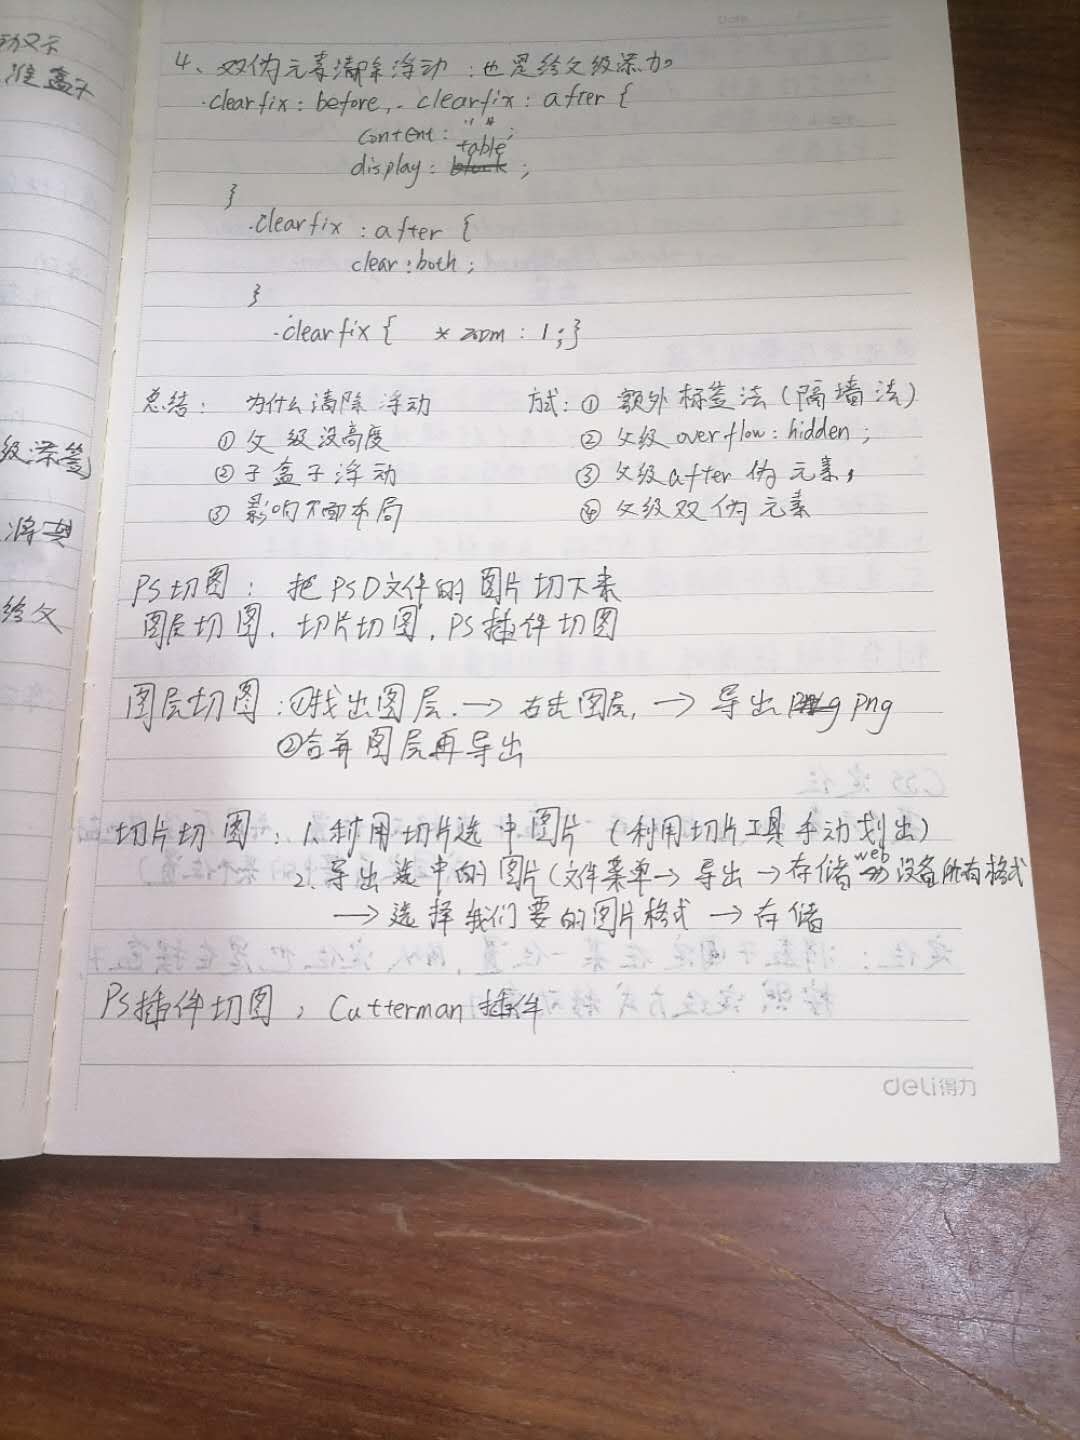 4、双伪元素清除浮动:也是给父级添加
.clearfix:before,.clearfix:after {
content:" ";
display: table;
}
.clearfix:after {
clear:both;
}
.clearfix { *zoom:1;}
总结: 为什么清除浮动 方式:① 额外标签法(隔墙法)
① 父级没高度 ② 父级overflow:hidden;
② 子盒子浮动 ③ 父级after伪元素,
③ 影响下面布局 ④ 父级双伪元素
PS切图: 把PSD文件的图片切下来
图层切图.切片切图,PS插件切图
图层切图:①找出图层.→右击图层,→导出png
②合并图层再导出
切片切图:1.利用切片选中图片(利用切片工具手动划出)
2.导出选中的图片(文件菜单→导出→存储web设备所有格式
→选择我们要的图片格式→存储
PS插件切图, Cutterman插件
deli得力
动又示
准盒子
级添
将其
给父